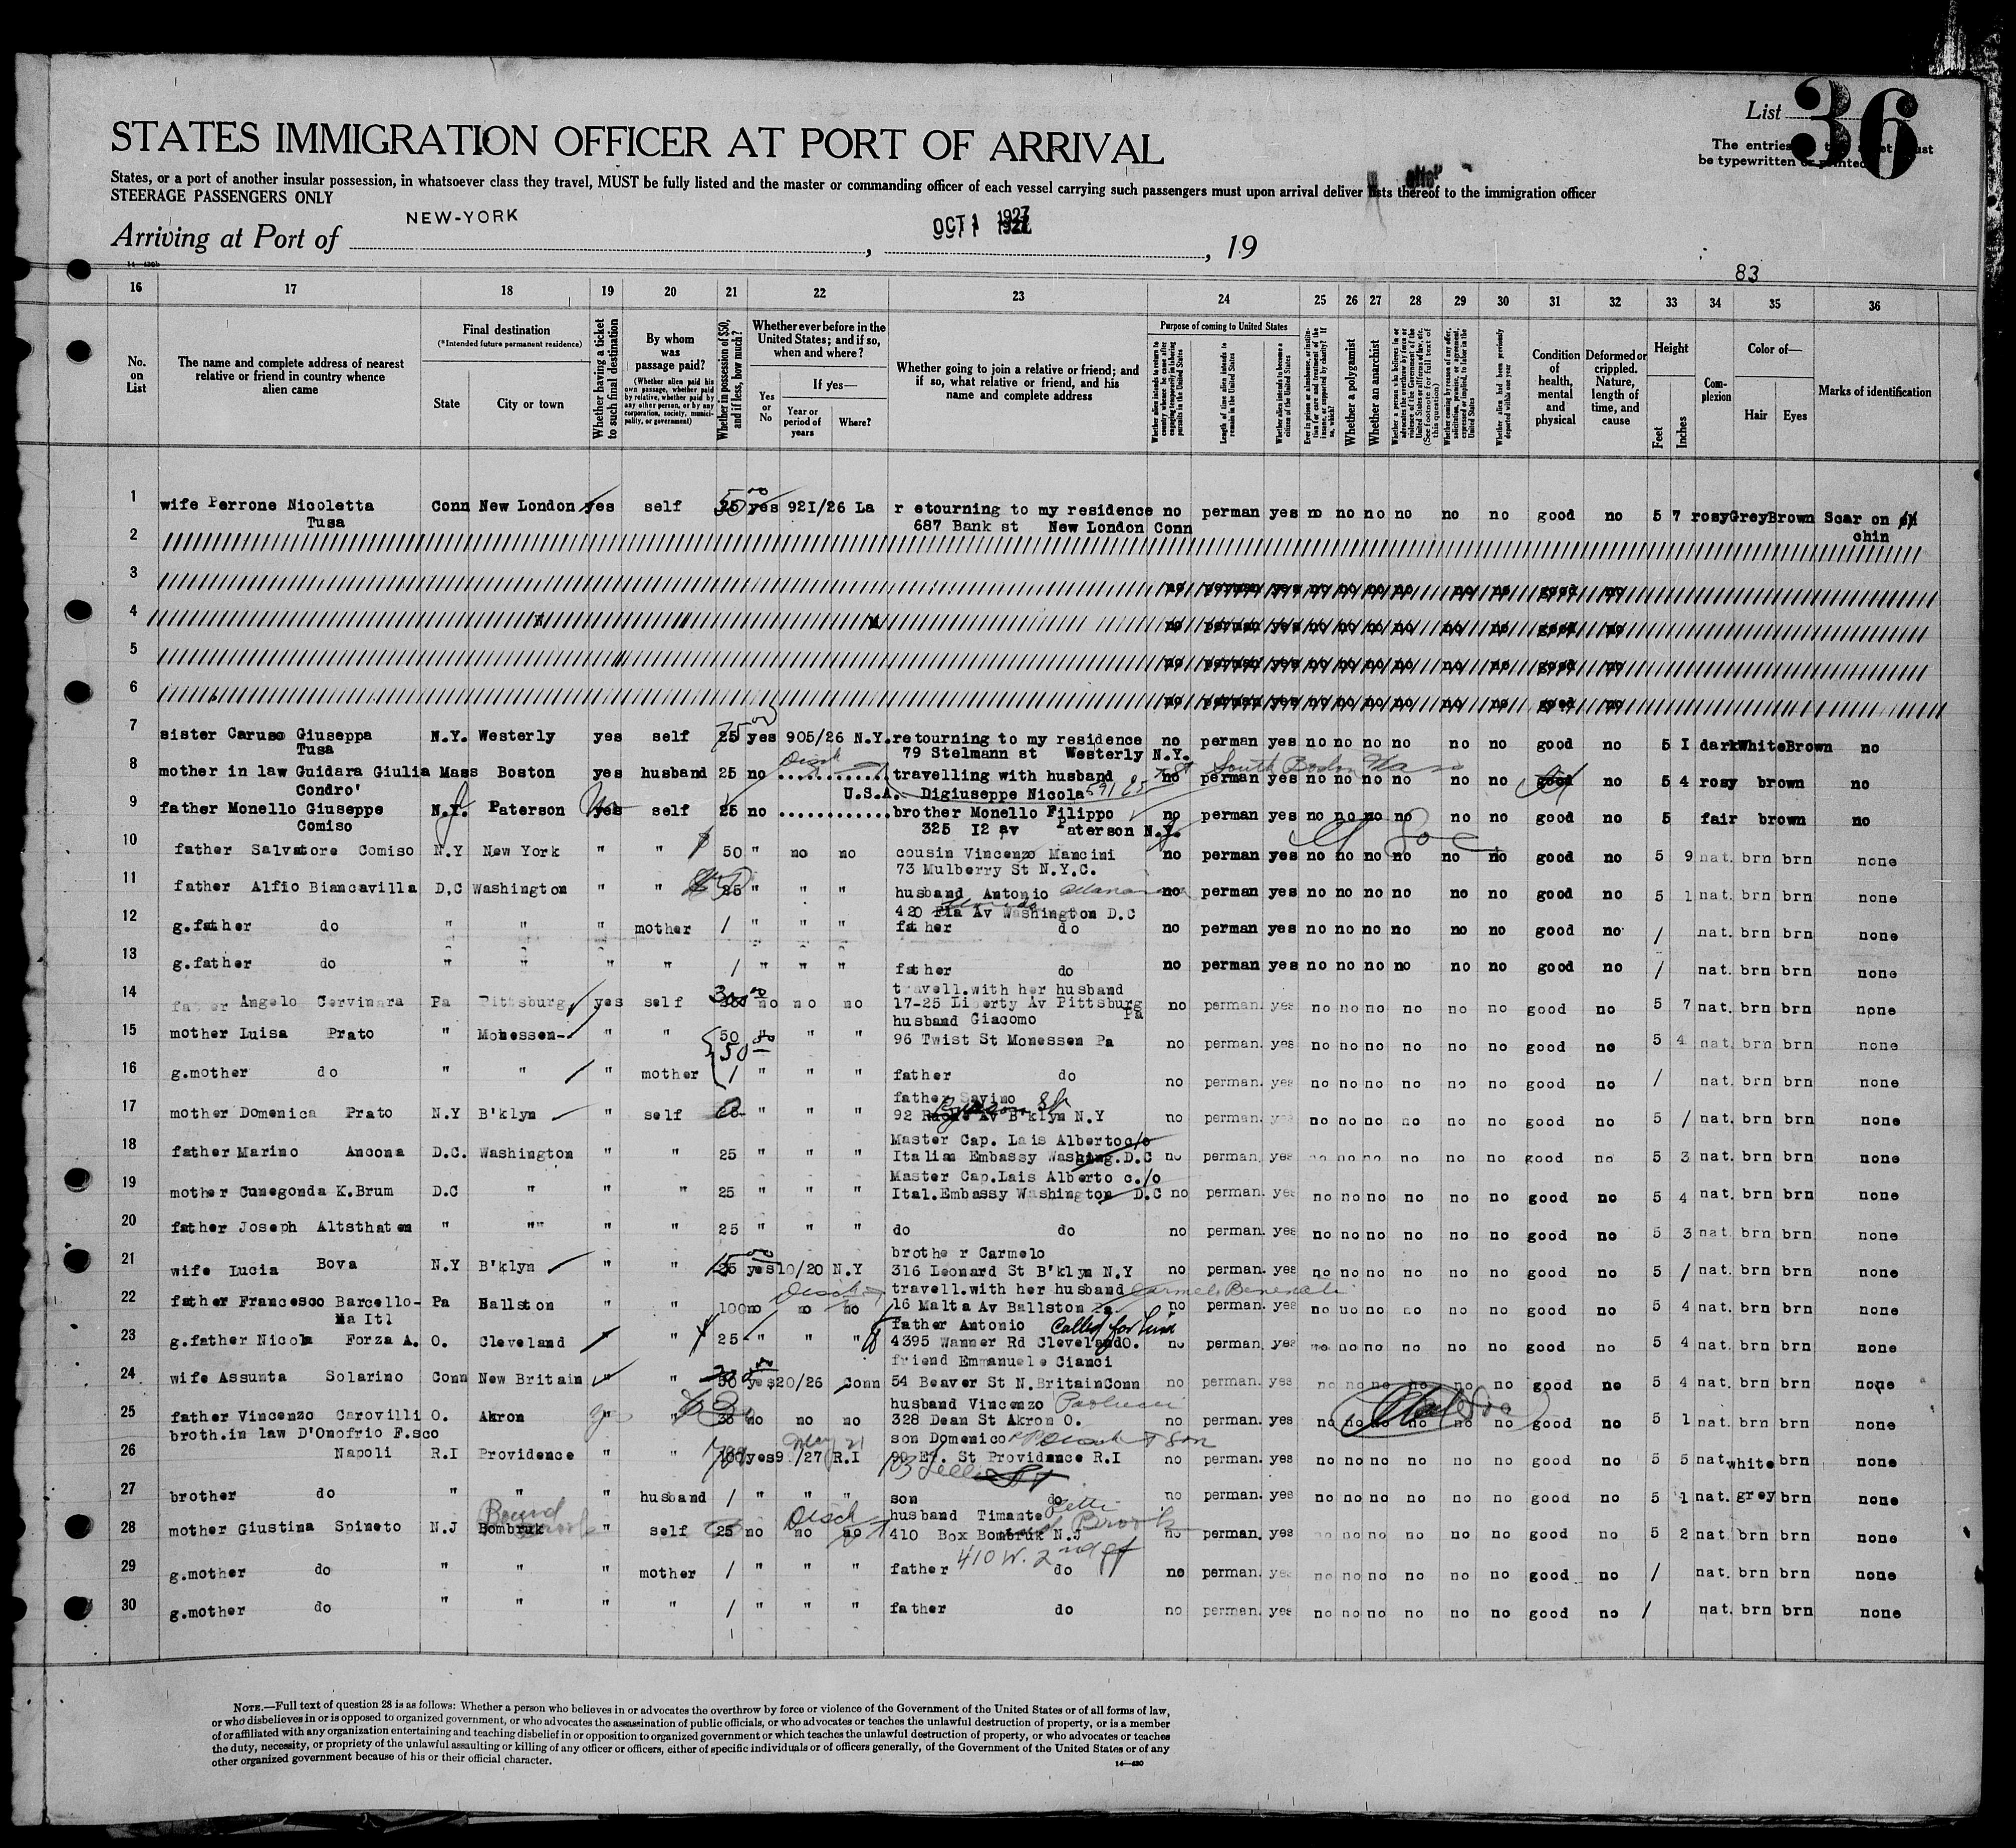 List 36
STATES IMMIGRATION OFFICER AT PORT OF ARRIVAL
The entries must
be typewritten or printed
States, or a port of another insular possession, in whatsoever class they travel, MUST be fully listed and the master or commanding officer of each vessel carrying such passengers must upon arrival deliver lists thereof to the immigration officer
STEERAGE PASSENGERS ONLY
Arriving at Port of NEW-YORK, OCT 1 1927, 19
14—430b
83
16 17 18 19 20 21 22 23 24 25 26 27 28 29 30 31 32 33 34 35 36
No. on List
The name and complete address of nearest relative or friend in country whence alien came
Final destination (*Intended future permanent residence)
State City or town
Whether having a ticket to such final destination
By whom was passage paid?
(Whether alien paid his own passage, whether paid by relative, whether paid by any other person, or by any corporation, society, municipality, or government)
Whether in possession of $50, and if less, how much?
Whether ever before in the United States; and if so, when and where?
Yes or No
If yes—
Year or period of years
Where?
Whether going to join a relative or friend; and if so, what relative or friend, and his name and complete address
Purpose of coming to United States
Whether alien intends to return to country whence he came after engaging temporarily in laboring pursuits in the United States
Length of time alien intends to remain in the United States
Whether alien intends to become a citizen of the United States
Ever in prison or almshouse, or institution for care and treatment of the insane, or supported by charity? If so, which?
Whether a polygamist
Whether an anarchist
Whether a person who believes in or advocates the overthrow by force or violence of the Government of the United States or all forms of law, etc. (See footnote for full text of this question)
Whether coming by reason of any offer, solicitation, promise, or agreement, expressed or implied, to labor in the United States
Whether alien had been previously deported within one year
Condition of health, mental and physical
Deformed or crippled. Nature, length of time, and cause
Height
Feet Inches
Complexion
Color of—
Hair Eyes
Marks of identification
1 wife Perrone Nicoletta Conn New London yes self 25 yes 921/26 La r etourning to my residence no perman yes no no no no no no good no 5 7 rosy Grey Brown Scar on
Tusa 687 Bank st New London Conn chin
2
3 no perman yes no no no no no no good no
4 no perman yes no no no no no no good no
5 no perman yes no no no no no no good no
6 no perman yes no no no no no no good no
7 sister Caruso Giuseppa N.Y. Westerly yes self 25 yes 905/26 N.Y. retourning to my residence no perman yes no no no no no no good no 5 I dark White Brown no
Tusa 79 Stelmann st Westerly N.Y.
8 mother in law Guidara Giulia Mass Boston yes husband 25 no ............ travelling with husband no perman yes no no no no no no good no 5 4 rosy brown no
Disch South Boston Mass
Condro' U.S.A. Digiuseppe Nicola 591
9 father Monello Giuseppe N.Y. Paterson yes self 25 no ............ brother Monello Filippo no perman yes no no no no no no good no 5 fair brown no
Comiso 325 I2 av Paterson N.Y.
10 father Salvatore Comiso N.Y New York " " 50 " no no cousin Vincenzo Mancini no perman yes no no no no no no good no 5 9 nat. brn brn none
73 Mulberry St N.Y.C.
11 father Alfio Biancavilla D.C Washington " " 25 " " " husband Antonio no perman yes no no no no no no good no 5 1 nat. brn brn none
420 Fla Av Washington D.C
12 g.father do " " " mother / " " " father do no perman yes no no no no no no good no / nat. brn brn none
13 g.father do " " " " / " " " father do no perman yes no no no no no no good no / nat. brn brn none
travell.with her husband
14 father Angelo Cervinara Pa Pittsburg yes self no no no 17-25 Liberty Av Pittsburg Pa no perman. yes no no no no no no good no 5 7 nat. brn brn none
husband Giacomo
15 mother Luisa Prato " Monessen- " " 50 " " " 96 Twist St Monessen Pa no perman. yes no no no no no no good no 5 4 nat. brn brn none
50
16 g.mother do " " " mother / " " " father do no perman. yes no no no no no no good no / nat. brn brn none
father Savino
17 mother Domenica Prato N.Y B'klyn " self " " " 92 Av B'klyn N.Y no perman. yes no no no no no no good no 5 / nat. brn brn none
Master Cap. Lais Alberto c/o
18 father Marino Ancona D.C. Washington " " 25 " " " Italian Embassy Washing. D.C no perman. yes no no no no no no good no 5 3 nat. brn brn none
Master Cap.Lais Alberto c./o
19 mother Cunegonda K.Brum D.C " " " 25 " " " Ital.Embassy Washington D.C no perman. yes no no no no no no good no 5 4 nat. brn brn none
20 father Joseph Altsthaten " "" " " 25 " " " do do no perman. yes no no no no no no good no 5 3 nat. brn brn none
brothe r Carmelo
21 wife Lucia Bova N.Y B'klyn " " yes 10/20 N.Y 316 Leonard St B'klyn N.Y no perman. yes no no no no no no good no 5 / nat. brn brn none
travell.with her husband Carmelo Benenati
22 father Francesco Barcello- Pa Ballston " " 100 no no no 16 Malta Av Ballston Pa. no perman. yes no no no no no no good no 5 4 nat. brn brn none
Ma Itl father Antonio Called for him
23 g.father Nicola Forza A. O. Cleveland " 25 " " " 4395 Wanner Rd Cleveland O. no perman. yes no no no no no no good no 5 4 nat. brn brn none
friend Emmanuele Cianci
24 wife Assunta Solarino Conn New Britain " " 50 yes 20/26 Conn 54 Beaver St N.Britain Conn no perman. yes no no no no no no good no 5 4 nat. brn brn none
husband Vincenzo
25 father Vincenzo Carovilli O. Akron " " no no no 328 Dean St Akron O. no perman. yes no no no no no no good no 5 1 nat. brn brn none
broth.in law D'Onofrio F.sco son Domenico
26 Napoli R.I Providence " " 100 yes 9 /27 R.I 90 St Providence R.I no perman. yes no no no no no no good no 5 5 nat white brn none
27 brother do " " " husband / " " " son do no perman. yes no no no no no no good no 5 1 nat. grey brn none
Bound Brook Disch husband Timante
28 mother Giustina Spineto N.J Bombruk " self 25 no no no 410 Box Bombrik N.J no perman. yes no no no no no no good no 5 2 nat. brn brn none
410 W. 2nd St
29 g.mother do " " " mother / " " " father do no perman. yes no no no no no no good no / nat. brn brn none
30 g.mother do " " " " / " " " father do no perman. yes no no no no no no good no / nat. brn brn none
NOTE.—Full text of question 28 is as follows: Whether a person who believes in or advocates the overthrow by force or violence of the Government of the United States or of all forms of law,
or who disbelieves in or is opposed to organized government, or who advocates the assassination of public officials, or who advocates or teaches the unlawful destruction of property, or is a member
of or affiliated with any organization entertaining and teaching disbelief in or opposition to organized government or which teaches the unlawful destruction of property, or who advocates or teaches
the duty, necessity, or propriety of the unlawful assaulting or killing of any officer or officers, either of specific individuals or of officers generally, of the Government of the United States or of any
other organized government because of his or their official character.
14—430